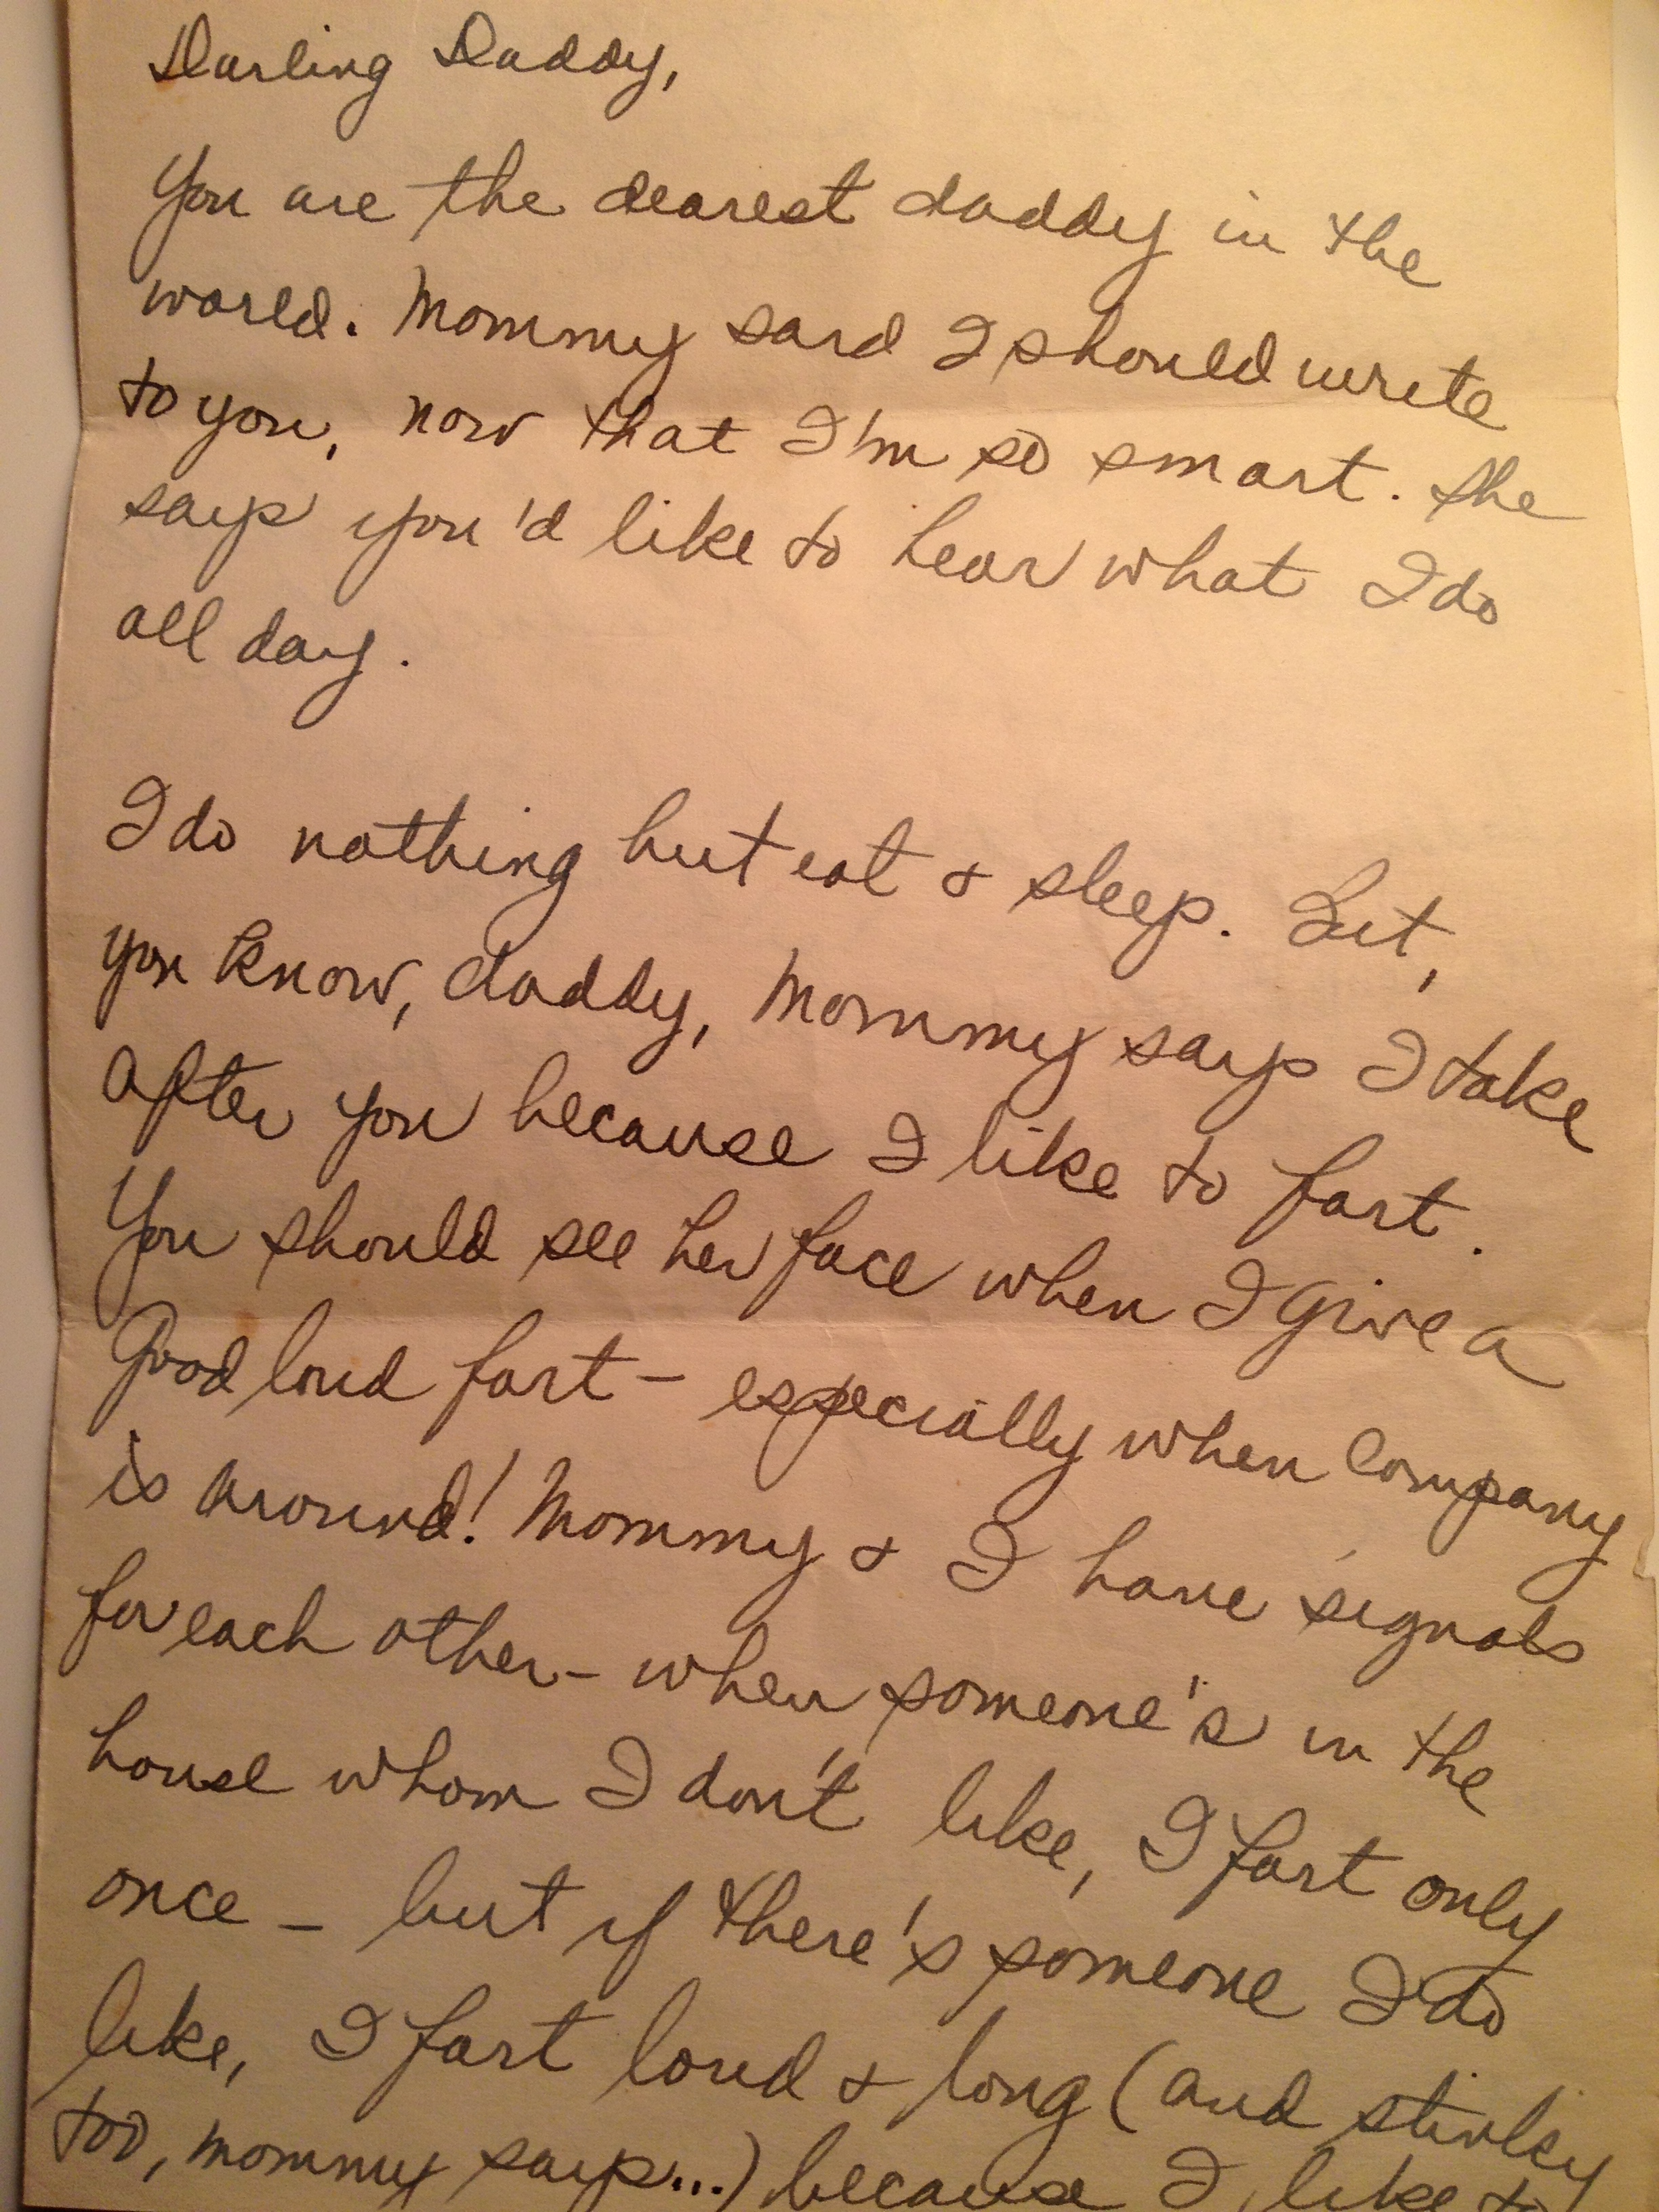 Darling Daddy,
You are the dearest daddy in the
world. Mommy said I should write
to you, now that I'm so smart. She
says you'd like to hear what I do
all day.
I do nothing but eat & sleep. But,
you know, daddy, Mommy says I take
after you because I like to fart.
You should see her face when I give a
Good loud fart – especially when company
is around! Mommy & I have signals
for each other – when someone's in the
house whom I don't like, I fart only
once – but if there's someone I do
like, I fart loud & long (and stinky
too, mommy says...) because I like to